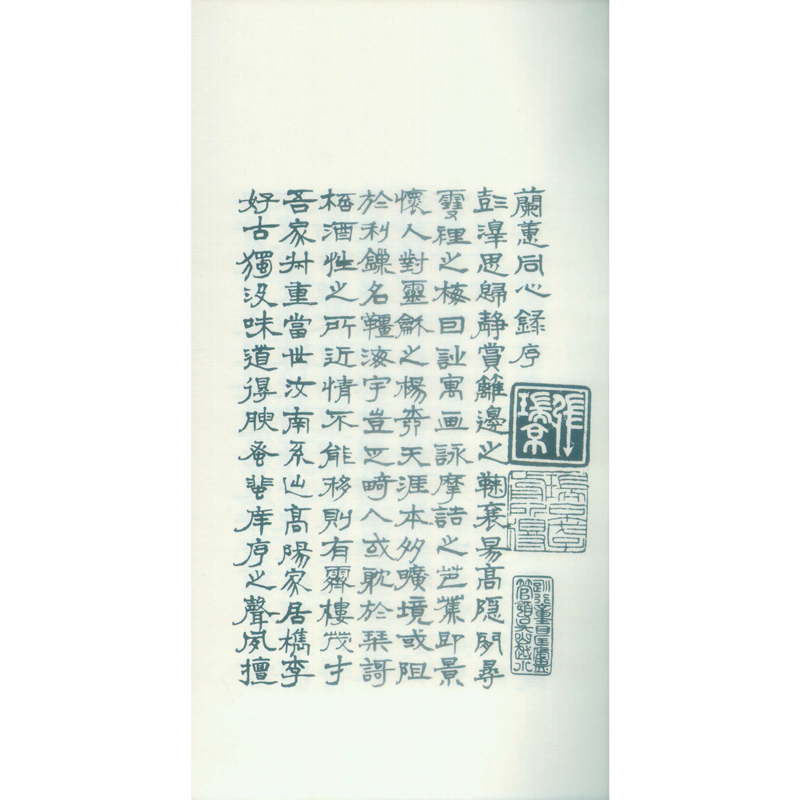 蘭蕙同心錄序
彭澤思歸静賞籬邊之鞠袁昜高隱閒尋
雪裡之梅曰寓画詠摩詰之芭蕉即景
懷人對靈龢之楊柳天涯本多曠境或阻
於利鏁名韁海宇豈乏畸人或耽於琹謌
酒性之所近情不能移則有霽樓茂才
吾家重當世汝南系出高陽家居檇李
好古獨没味道得腴蚤蜚庠序之聲夙擅